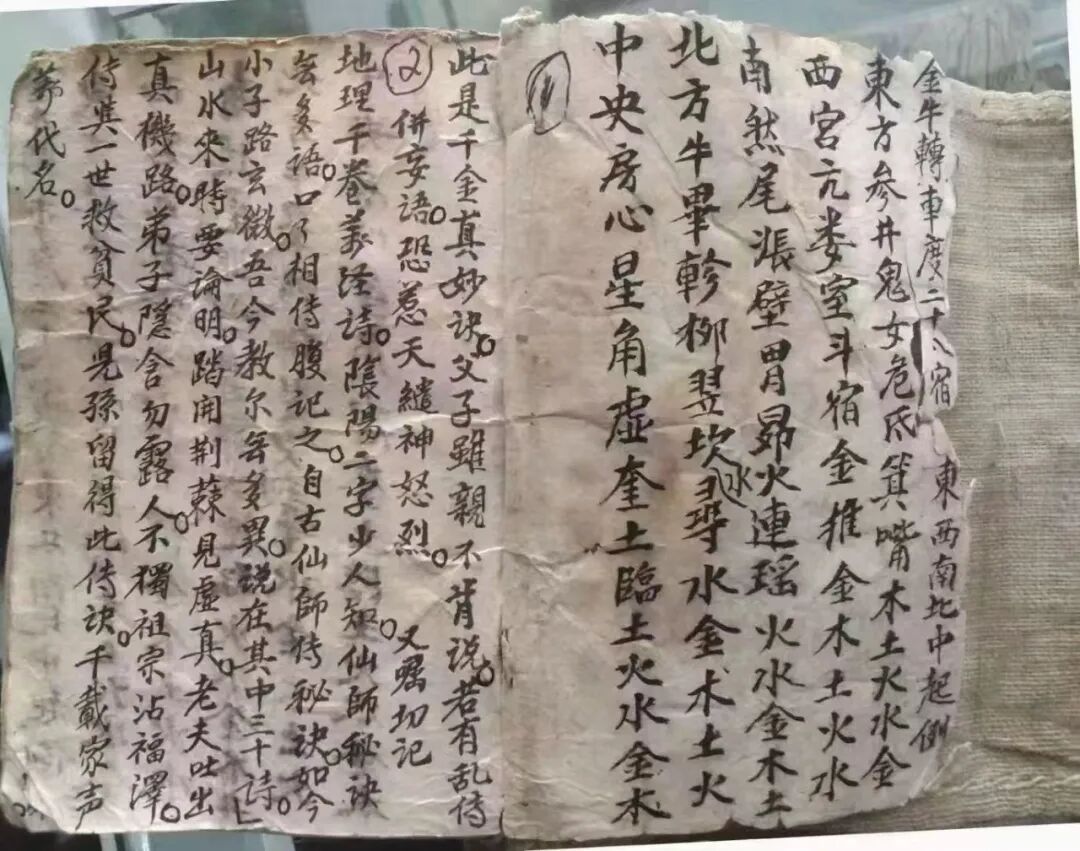 金牛轉車度二十八宿 東西南北中起例
東方参井鬼女危氐箕嘴木土火水金
西宮亢娄室斗宿金推金木土火水
南然尾漲壁胃昴火連瑶火水金木土
北方牛畢軫柳翌坎尋水金木土火
水
中央房心星角虚奎土臨土火水金木
(1)
此是千金真妙诀。父子雖親不肯说。若有乱传
(2)
併妄語。恐惹天繾神怒烈。 又嘱切记
地理千卷義经诗。陰陽二字少人知。仙師秘诀
無多語。口口相传腹记之。自古仙師传秘诀。如今
小子路玄微。吾今教尔無多異。说在其中三十诗。
山水來時要論明。踏開荆蕀見虚真。老夫吐出
真機路。弟子隱含勿露人。不獨祖宗沾福澤。
传奕一世救貧民。児孫留得此传诀。千載家声
代名。